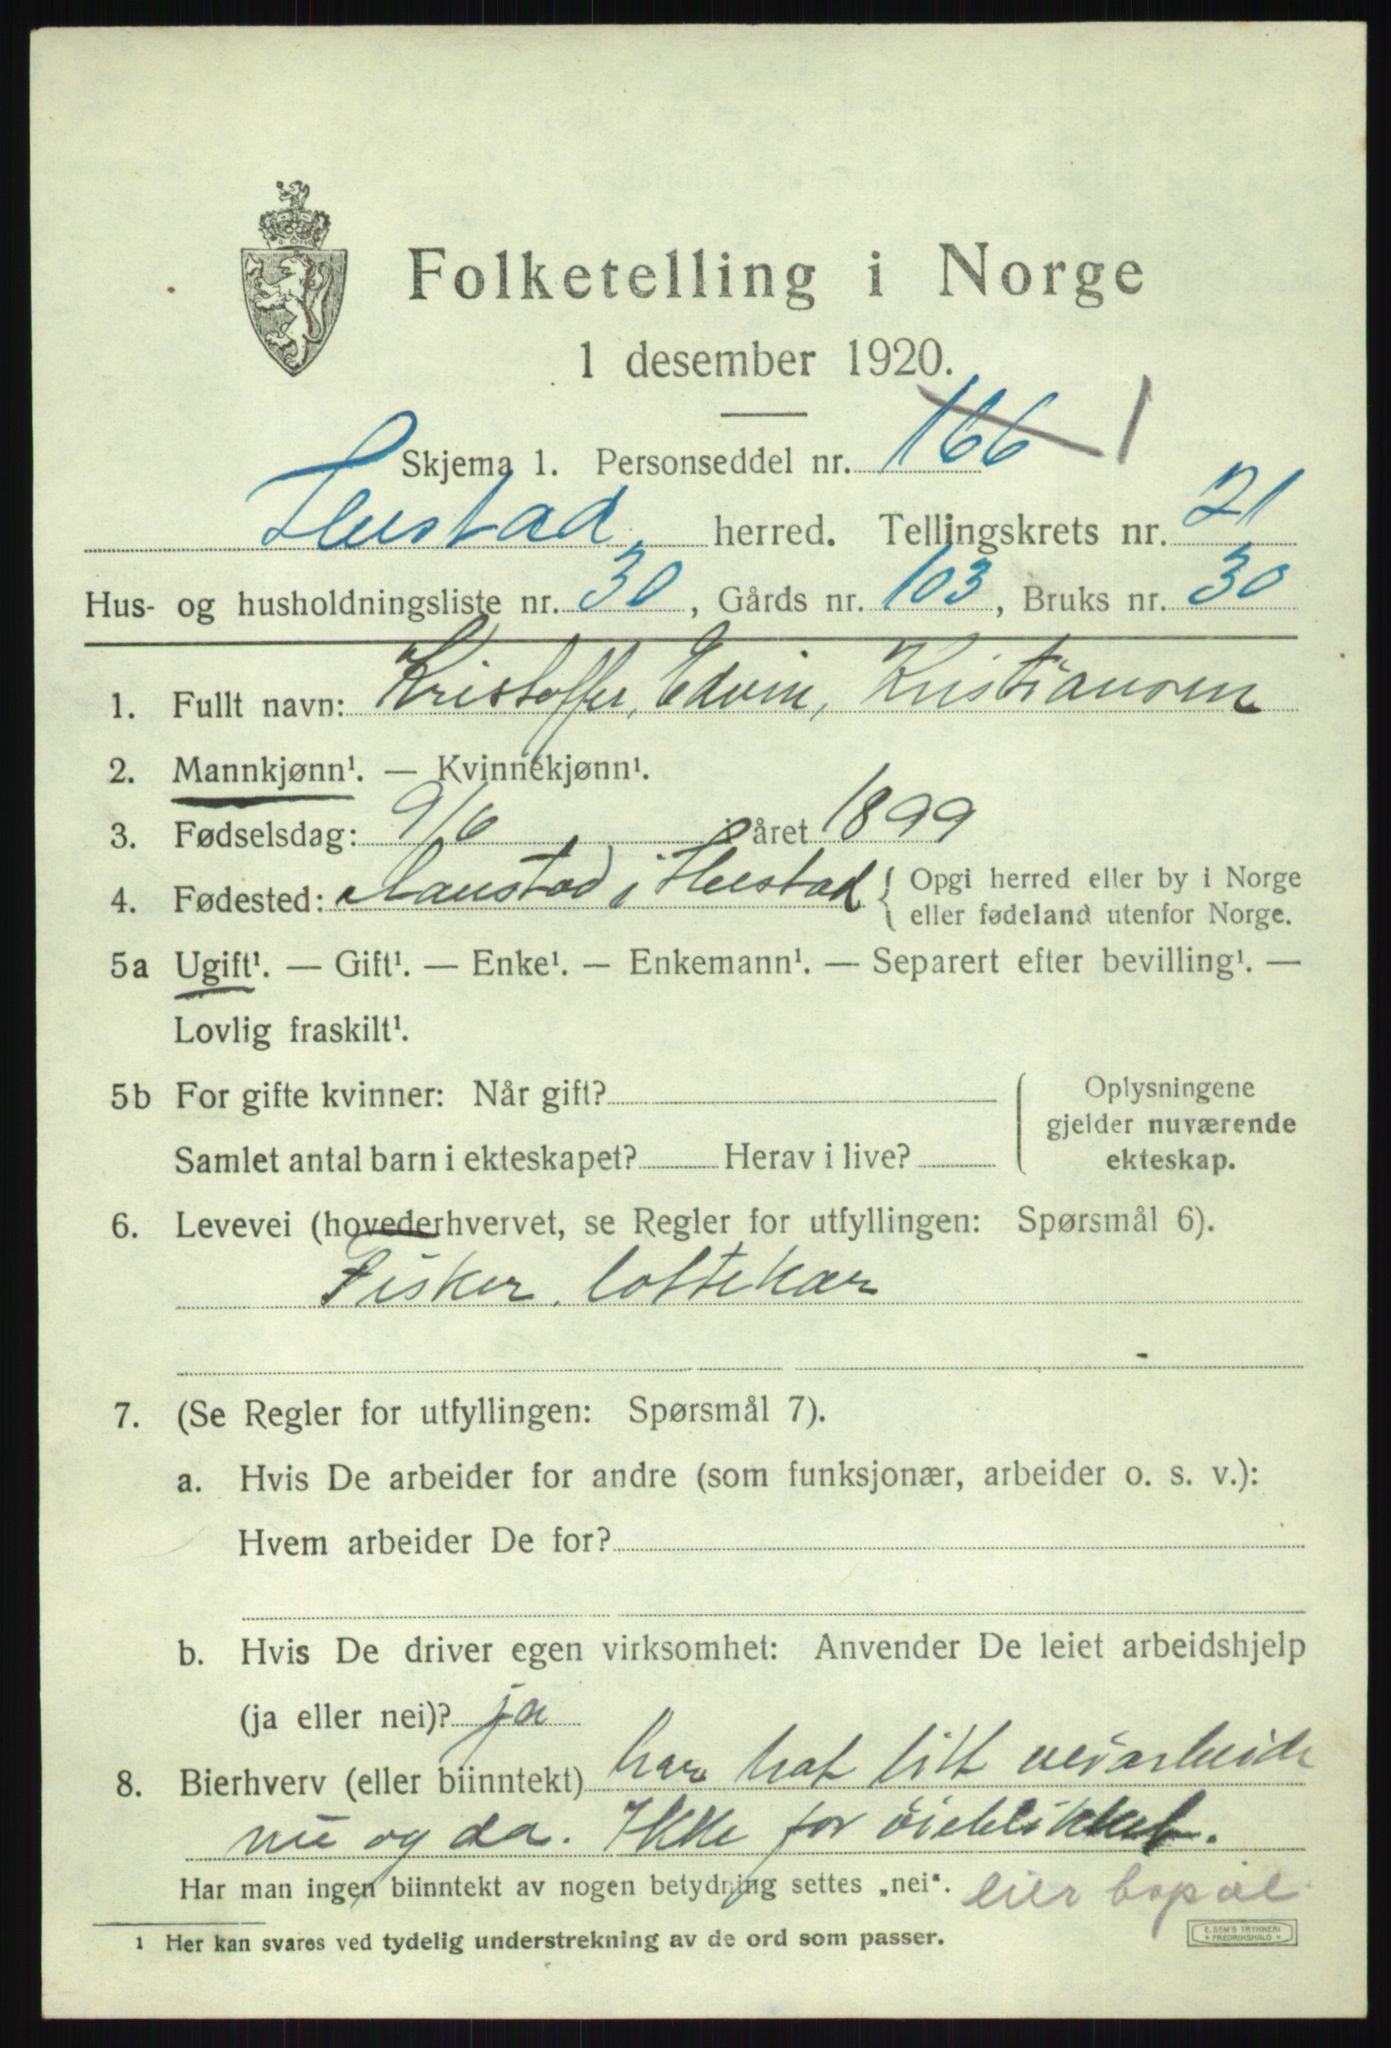 Folketelling i Norge
1 desember 1920.
Skjema 1. Personseddel nr. 166 1
Hustad herred. Tellingskrets nr. 21
Hus- og husholdningsliste nr. 30, Gårds nr. 103, Bruks nr. 30
1. Fullt navn: Kristoffer, Edvin, Kristiansen
2. Mannkjønn¹. — Kvinnekjønn¹.
3. Fødselsdag: 9/6 i året 1899
4. Fødested: Naustad i Hustad { Opgi herred eller by i Norge
eller fødeland utenfor Norge.
5a Ugift¹. — Gift¹. — Enke¹. — Enkemann¹. — Separert efter bevilling¹. —
Lovlig fraskilt¹.
5b For gifte kvinner: Når gift? { Oplysningene
gjelder nuværende
Samlet antal barn i ekteskapet? Herav i live? ekteskap.
6. Levevei (hovederhvervet, se Regler for utfyllingen: Spørsmål 6).
Fisker, lottekar
7. (Se Regler for utfyllingen: Spørsmål 7).
a. Hvis De arbeider for andre (som funksjonær, arbeider o. s. v.):
Hvem arbeider De for?
b. Hvis De driver egen virksomhet: Anvender De leiet arbeidshjelp
(ja eller nei)? ja
8. Bierhverv (eller biinntekt) har hat litt veiarbeide
nu og da. Ikke for øieblikket.
Har man ingen biinntekt av nogen betydning settes „nei“. eier bopæl
1 Her kan svares ved tydelig understrekning av de ord som passer.
E. SEM'S TRYKKERI
FREDRIKSHALD